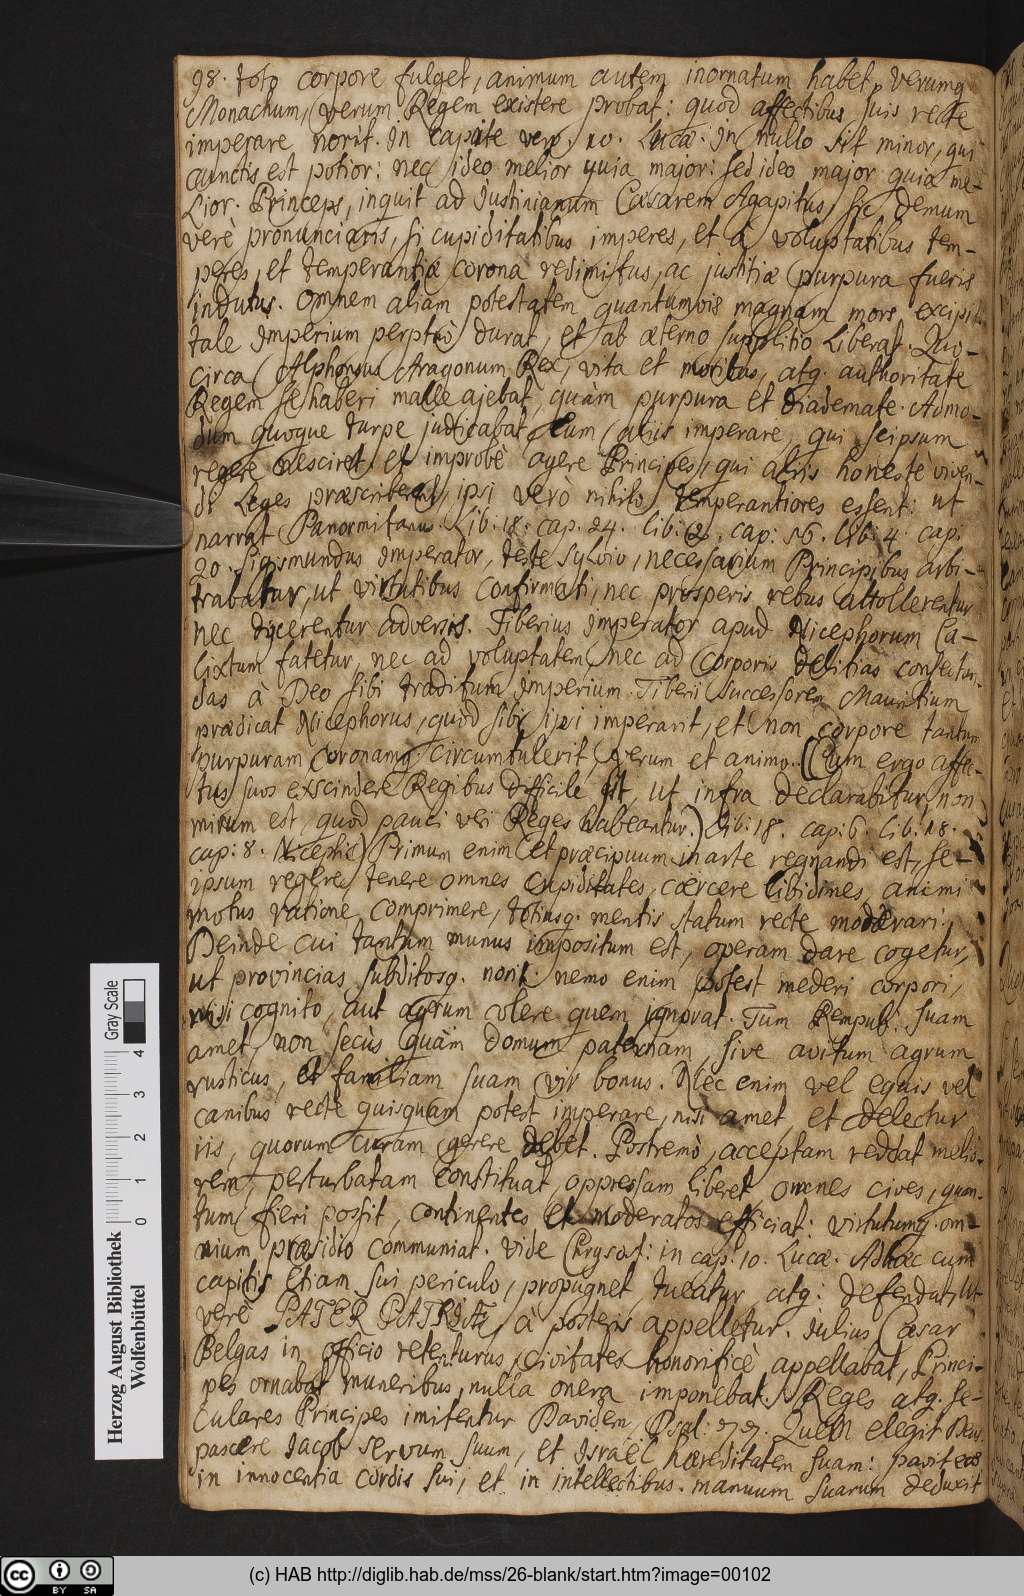 98. toto corpore fulget, animum autem inornatum habet, verumq
Monachum, verum Regem existere probat: quod affectibus suis recte
imperare norit. In capite vero. 10. Lucæ: In nullo sit minor, qui
cunctis est potior: nec ideo melior quia major: sed ideo major quia me-
lior. Princeps, inquit ad Justinianum Cæsarem Agapitus, sic demum
verè pronunciaris, si cupiditatibus imperes, et à voluptatibus tem-
peres, et temperantiæ corona redimitus, ac justitiæ purpura fueris
indutus. Omnem aliam potestatem quantumvis magnam mors excipit
tale Imperium perptuò durat, et ab æterno supplitio liberat. Quo-
circa Alphonsus Aragonum Rex, vita et moribus, atq. authoritate
Regem se haberi malle ajebat, quàm purpura et diademate. Admo-
dum quoque turpe judicabat, eum aliis imperare, qui seipsum
regere nesciret, et improbè agere Principes, qui aliis honestè viven-
di Leges præscriberent, ipsi verò nihilo temperantiores essent: ut
narrat Panormitanus. Lib: 18. cap. 24. lib: 2. cap: 16. lib: 4. cap.
20. Sigismundus Imperator, teste Sylvio, necessarium Principibus arbi-
trabatur, ut virtutibus confirmati, nec prosperis rebus attollerentur
nec dijcerentur adversis. Tiberius Imperator apud Nicephorum Ca-
lixtum fatetur, nec ad voluptatem nec ad corporis delitias consectan-
das à Deo sibi traditum Imperium. Tiberii Successorem Mauritium
prædicat Nicephorus, quod sibi ipsi imperarit, et non corpore tantum
purpuram coronamq circumtulerit, verum et animo. (Cum ergo affe-
tus suos exscindere Regibus difficile sit, ut infra declarabitur, non
mirum est, quod pauci veri Reges habeantur.) Lib: 18. cap: 6. lib. 18.
cap: 8. Nicephis) Primum enim et præcipuum in arte regnandi est, se-
ipsum regere, tenere omnes cupiditates, coercere libidines, animi
motus ratione comprimere, totiusq. mentis statum recte moderari.
Deinde cui tantum munus impositum est, operam dare cogetur,
ut provincias, subditosq. norit. nemo enim potest mederi corpori,
nisi cognito, aut agrum colere quem ignorat. Tum Rempub: suam
amet, non secùs quàm domum paternam, sive avitum agrum
rusticus, et familiam suam vir bonus. Nec enim vel equis vel
canibus recte quisquam potest imperare, nisi amet, et delectur
iis, quorum curam gerere debet. Postremò, acceptam reddat melio-
rem, perturbatam constituat, oppressam liberet, omnes cives, quan-
tum fieri possit, continentes et moderatos efficiat. virtutumq. om-
nium præsidio communiat. vide Chrysost: in cap. 10. Lucæ. Adhæc cum
capitis etiam sui periculo, propugnet, tueatur, atq. defendat, ut
verè PATER PATRIÆ, à posteris appelletur. Julius Cæsar
Belgas in officio retenturus, civitates honorificè appellabat, Princi-
pes ornabat muneribus, nulla onera imponebat. Reges atq. se-
culares Principes imitentur Davidem, Psal: 77. Quem elegit Deus
pascere Jacob servum suum, et Israël hæreditatem suam: pavit eos
in innocentia cordis sui, et in intellectibus. manuum suarum deduxit
Herzog August Bibliothek
Wolfenbüttel
0 1 2 3 4
Gray Scale
(c) HAB http://diglib.hab.de/mss/26-blank/start.htm?image=00102
cc BY SA